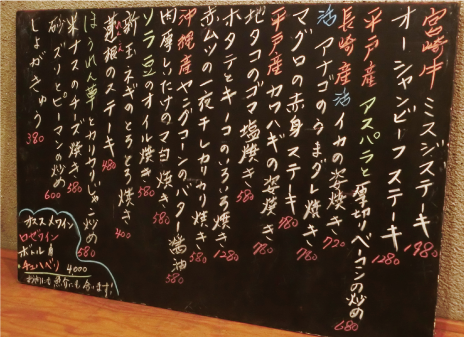 宮崎牛 ミスジステーキ 1980
オーシャンビーフステーキ 1280
平戸産 アスパラと厚切りベーコンの炒め 680
長崎産 活イカの姿焼き 720
活アナゴのうまダレ焼き
マグロの赤身ステーキ 980
平戸産 カワハギの姿焼き 780
地タコのゴマ塩焼き 580
ホタテとキノコのいろいろ焼き 1280
赤ムツの一夜干しカリカリ焼き 780
沖縄産 ヤングコーンのバター醤油 580
肉厚しいたけのマヨ焼き 580
ソラ豆のオイル焼き 580
新玉ネギのとろとろ焼き 400
蓮根のステーキ 480
ほうれん草とカリカリじゃこ炒め 580
米ナスのチーズ焼き 580
砂ズリとピーマンの炒め 600
しょがきゅう 380
オススメワイン
ロゼワイン
ボトル
4000